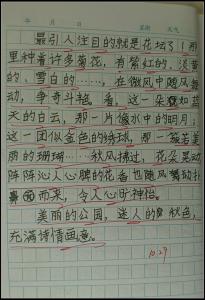 年 月 日 星期 天气
最引人注目的就是花坛了!那
里种着许多菊花,有紫红的、淡黄
的、雪白的……,在微风中随风舞
动,争奇斗艳。看,这一朵像如蓝
天的白云,那一片像水中的明月;
这一团似金色的绣球,那一簇若美
丽的珊瑚……秋风拂过,花朵灵动
阵阵沁人心脾的花香也随风舞动扑
鼻而来,令人心旷神怡。
美丽的公园,迷人的秋色,
充满诗情画意。
10.29